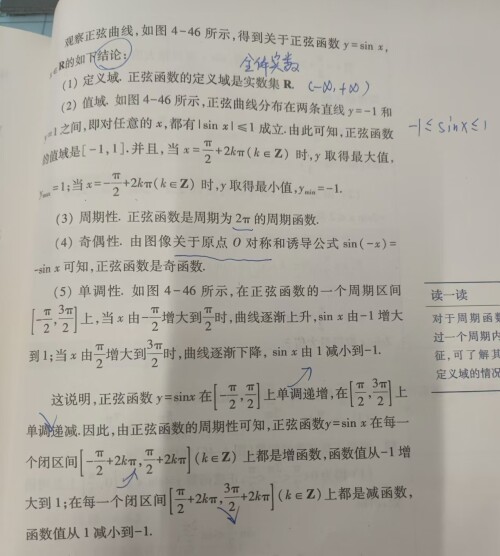 观察正弦曲线,如图 4-46 所示,得到关于正弦函数 y=sin x,
x∈R的如下结论:
全体实数
(1) 定义域. 正弦函数的定义域是实数集 R. (-∞,+∞)
(2) 值域. 如图 4-46 所示,正弦曲线分布在两条直线 y=-1 和
y=1 之间,即对任意的 x,都有|sin x|≤1 成立.由此可知,正弦函数
-1≤sinx≤1
的值域是[-1,1].并且,当 x=π/2+2kπ(k∈Z)时,y 取得最大值,
ymax=1;当 x=-π/2+2kπ(k∈Z)时,y 取得最小值,ymin=-1.
(3) 周期性. 正弦函数是周期为 2π 的周期函数.
(4) 奇偶性. 由图像关于原点 O 对称和诱导公式 sin(-x)=
-sin x 可知,正弦函数是奇函数.
(5) 单调性. 如图 4-46 所示,在正弦函数的一个周期区间
[-π/2,3π/2]上,当 x 由-π/2增大到π/2时,曲线逐渐上升,sin x 由-1 增大
到 1;当 x 由π/2增大到3π/2时,曲线逐渐下降, sin x 由 1 减小到-1.
这说明,正弦函数 y=sinx 在[-π/2,π/2]上单调递增,在[π/2,3π/2]上
单调递减.因此,由正弦函数的周期性可知,正弦函数y=sin x 在每一
个闭区间[-π/2+2kπ,π/2+2kπ](k∈Z)上都是增函数,函数值从-1 增
大到 1;在每一个闭区间[π/2+2kπ,3π/2+2kπ](k∈Z)上都是减函数,
函数值从 1 减小到-1.
读一读
对于周期函数
过一个周期内
征,可了解其
定义域的情况